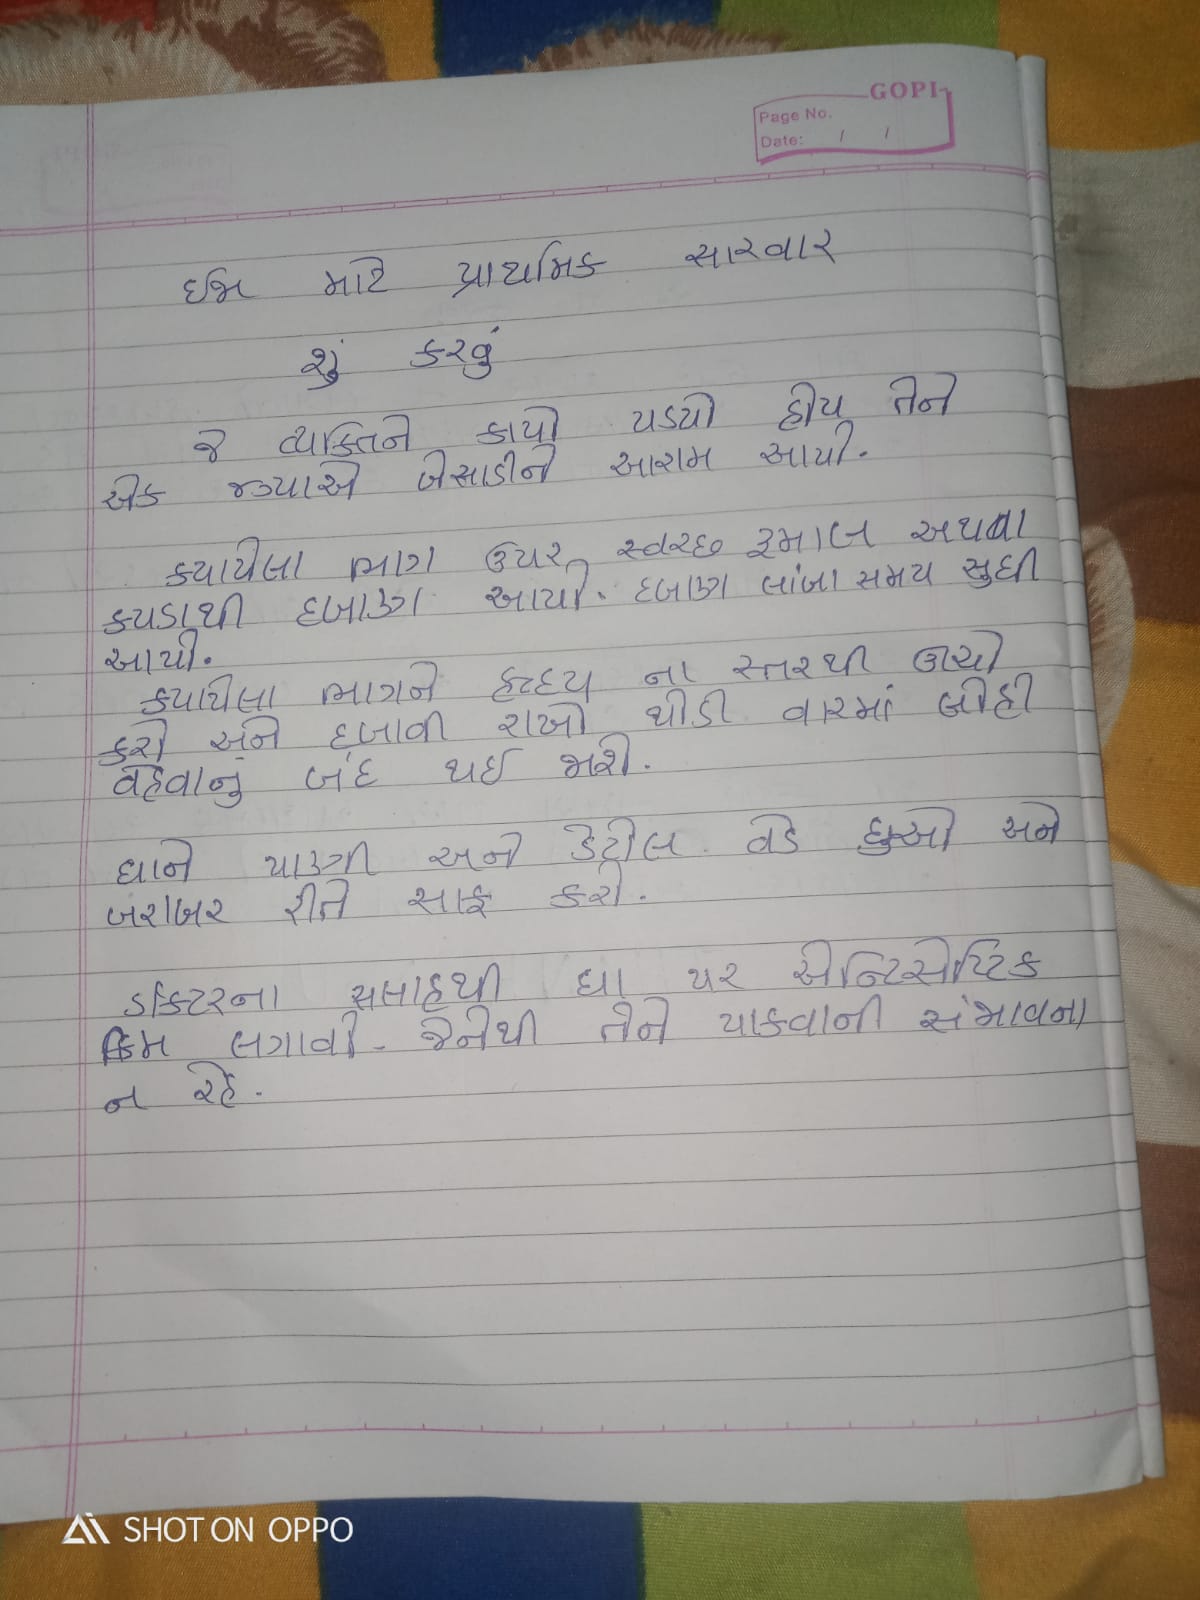 GOPI
Page No.
Date: / /
ઈજા માટે પ્રાથમિક સારવાર
શું કરવું
જે વ્યક્તિને કાપો પડ્યો હોય તેને
એક જગ્યાએ બેસાડીને આરામ આપો.
કપાયેલા ભાગ ઉપર સ્વચ્છ રૂમાલ અથવા
કપડાથી દબાણ આપો. દબાણ લાંબા સમય સુધી
આપો.
કપાયેલા ભાગને હૃદય ના સ્તરથી ઊંચો
કરો અને દબાવી રાખો થોડી વારમાં લોહી
વહેવાનું બંધ થઈ જાશે.
ઘાને પાણી અને ડેટોલ વડે ધુઓ અને
બરાબર રીતે સાફ કરો.
ડોક્ટરના સલાહથી ઘા પર એન્ટિસેપ્ટિક
ક્રિમ લગાવો. જેનેથી તેને પાકવાની સંભાવના
ન રહે.
SHOT ON OPPO